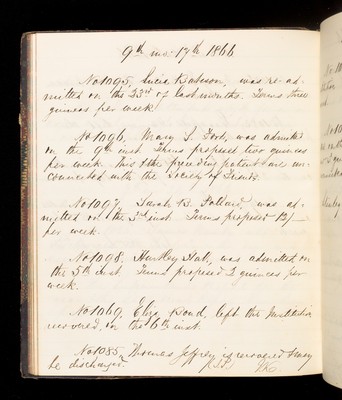 9th mo 17th 1866
No 1095, Lucia Bateson, was re-ad-
mitted on the 23rd of last month. Terms three
guineas per week
No 1096, Mary S. Fort, was admitted
on the 9th inst. Terms proposed two guineas
per week. This & the preceding patient are un-
connected with the Society of Friends.
No 1097. Sarah B. Pollard, was ad-
mitted on the 3rd inst Terms proposed 12/-
per week.
No 1098. Hartley Hall, was admitted on
the 5th inst. Terms proposed 2 guineas per
week.
No 1069. Eliza Bond, left the Institution
recovered, on the 6th inst.
No 1085. Thomas Jeffrey is recovered & may
be discharged.